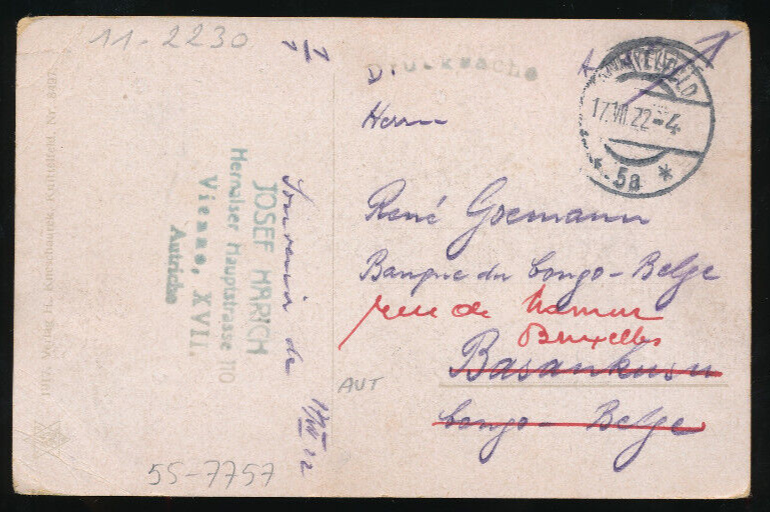 11-2230
Drucksache
KNITTELFELD
17.VII.22-4
* 5a *
Herrn
René Goemann
Banque du Congo-Belge
rue de Namur
Bruxelles
Basankusu
Congo-Belge
Souvenir de
JOSEF MARICH
Hernalser Hauptstrasse 110
Vienne, XVII.
Autriche
17/VII 22
1917. Verlag H. Kneschaurek, Knittelfeld. Nr.
AUT
55-7757